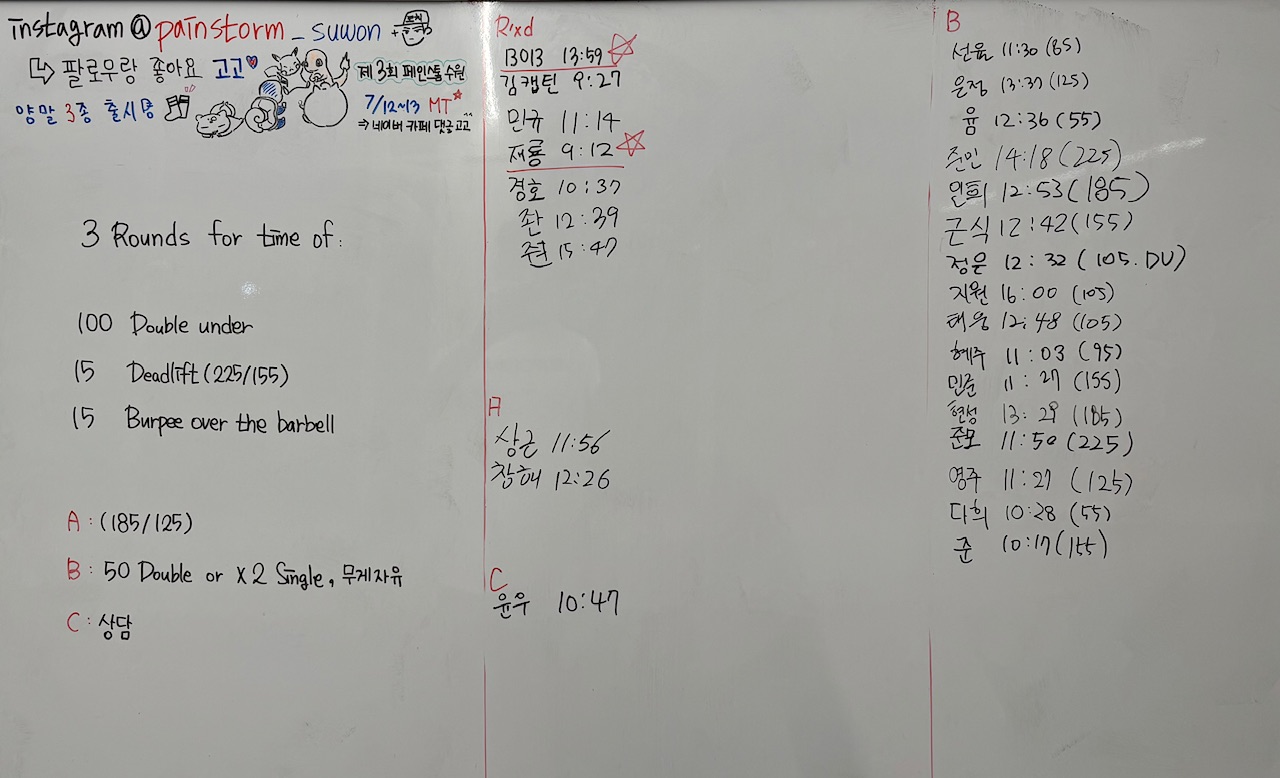 instagram @ painstorm_suwon +
↳ 팔로우랑 좋아요 고고♥
양말 3종 출시
제 3회 페인스톰 수원
7/12~13 MT
⇒ 네이버 카페 댓글 고고
3 Rounds for time of:
100 Double under
15 Deadlift (225/155)
15 Burpee over the barbell
A : (185/125)
B : 50 Double or x2 Single, 무게자유
C : 상담
Rxd
13:59
김캡틴 9:27
민규 11:14
재룡 9:12
경호 10:37
좐 12:39
15:47
A
상근 11:56
창해 12:26
C
윤우 10:47
B
선율 11:30 (65)
은정 13:37 (125)
윰 12:36 (55)
준인 14:18 (225)
인희 12:53 (185)
근식 12:42 (155)
정은 12:32 (105.DU)
지원 16:00 (105)
태웅 12:48 (105)
혜주 11:03 (95)
민준 11:27 (155)
현성 13:29 (185)
준모 11:50 (225)
영주 11:27 (125)
다희 10:28 (55)
준 10:17 (155)